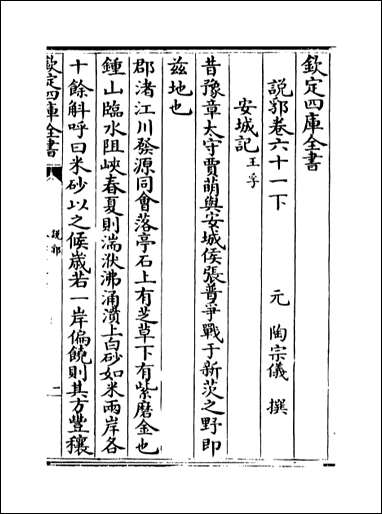 欽定四庫全書
說郛卷六十一下
元 陶宗儀 撰
安城記 王孚
昔豫章太守賈萌與安城侯張普爭戰于新茨之野即
兹地也
郡渚江川發源同會落亭石上有芝草下有紫磨金也
鍾山臨水阻峽春夏則湍洑沸涌濆上白砂如米兩岸各
十餘斛呼曰米砂以之候歲若一岸偏饒則其方豐穰
欽定四庫全書
說郛
二